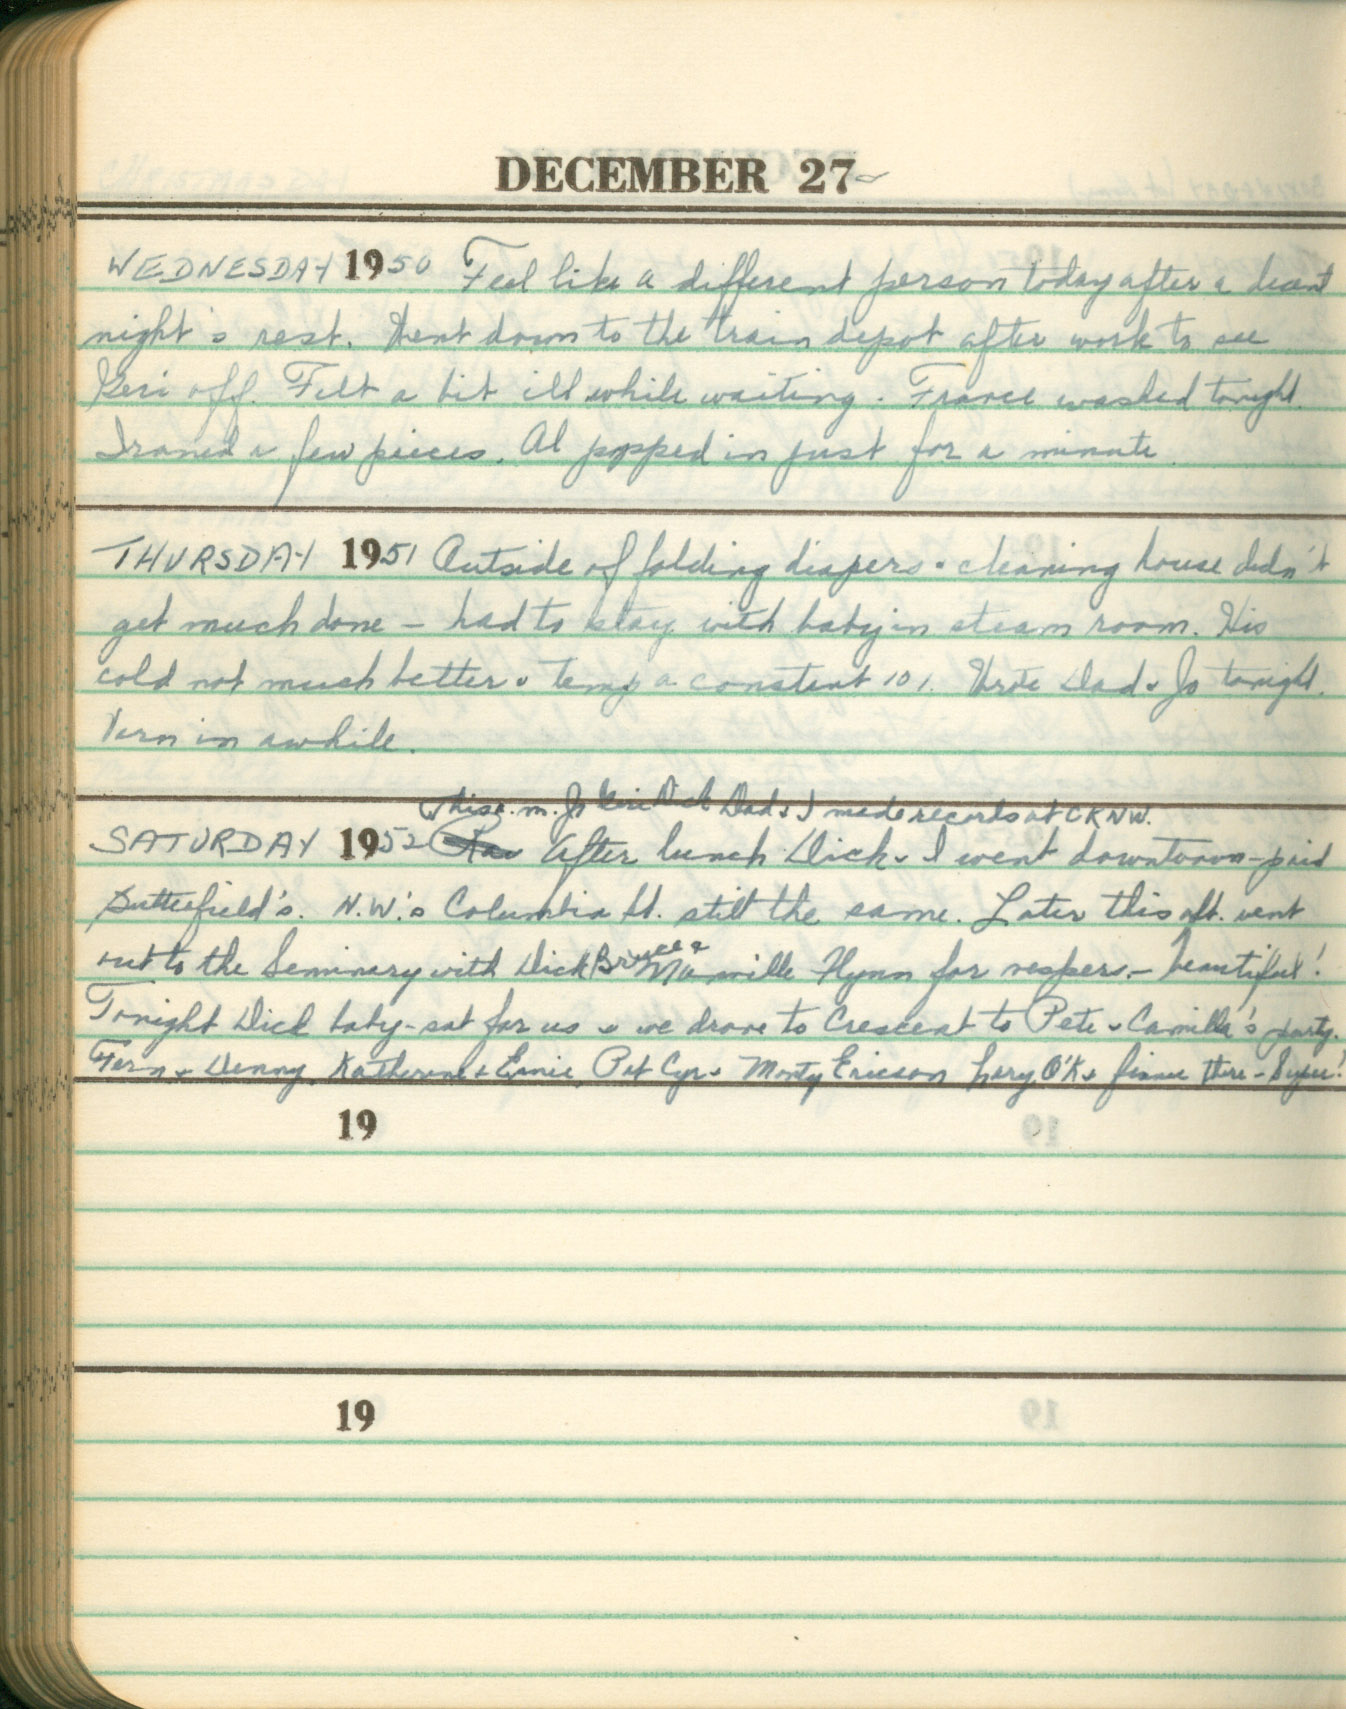 DECEMBER 27
WEDNESDAY 1950 Feel like a different person today after a decent
night's rest. Went down to the train depot after work to see
Geri off. Felt a bit ill while waiting. France washed tonight.
Ironed a few pieces. Al popped in just for a minute
THURSDAY 1951 Outside of folding diapers & cleaning house didn't
get much done – had to stay with baby in steam room. His
cold not much better & temp a constant 101. Wrote Dad & Jo tonight.
Vern in awhile.
This a.m. Jo Geri Dick Dad & I made records at CKNW.
SATURDAY 1952 After lunch Dick & I went downtown – paid
Butterfield's. N.W.'s Columbia St. still the same. Later this aft. went
out to the Seminary with Dick Bruce & Flynn for vespers – beautiful!
Tonight Dick baby-sat for us & we drove to Crescent to Pete & Camilla's party.
Fern & Denny, Katherine & Ernie, Pat Cyr & Monty Ericson O'K & there – Super!
19
19